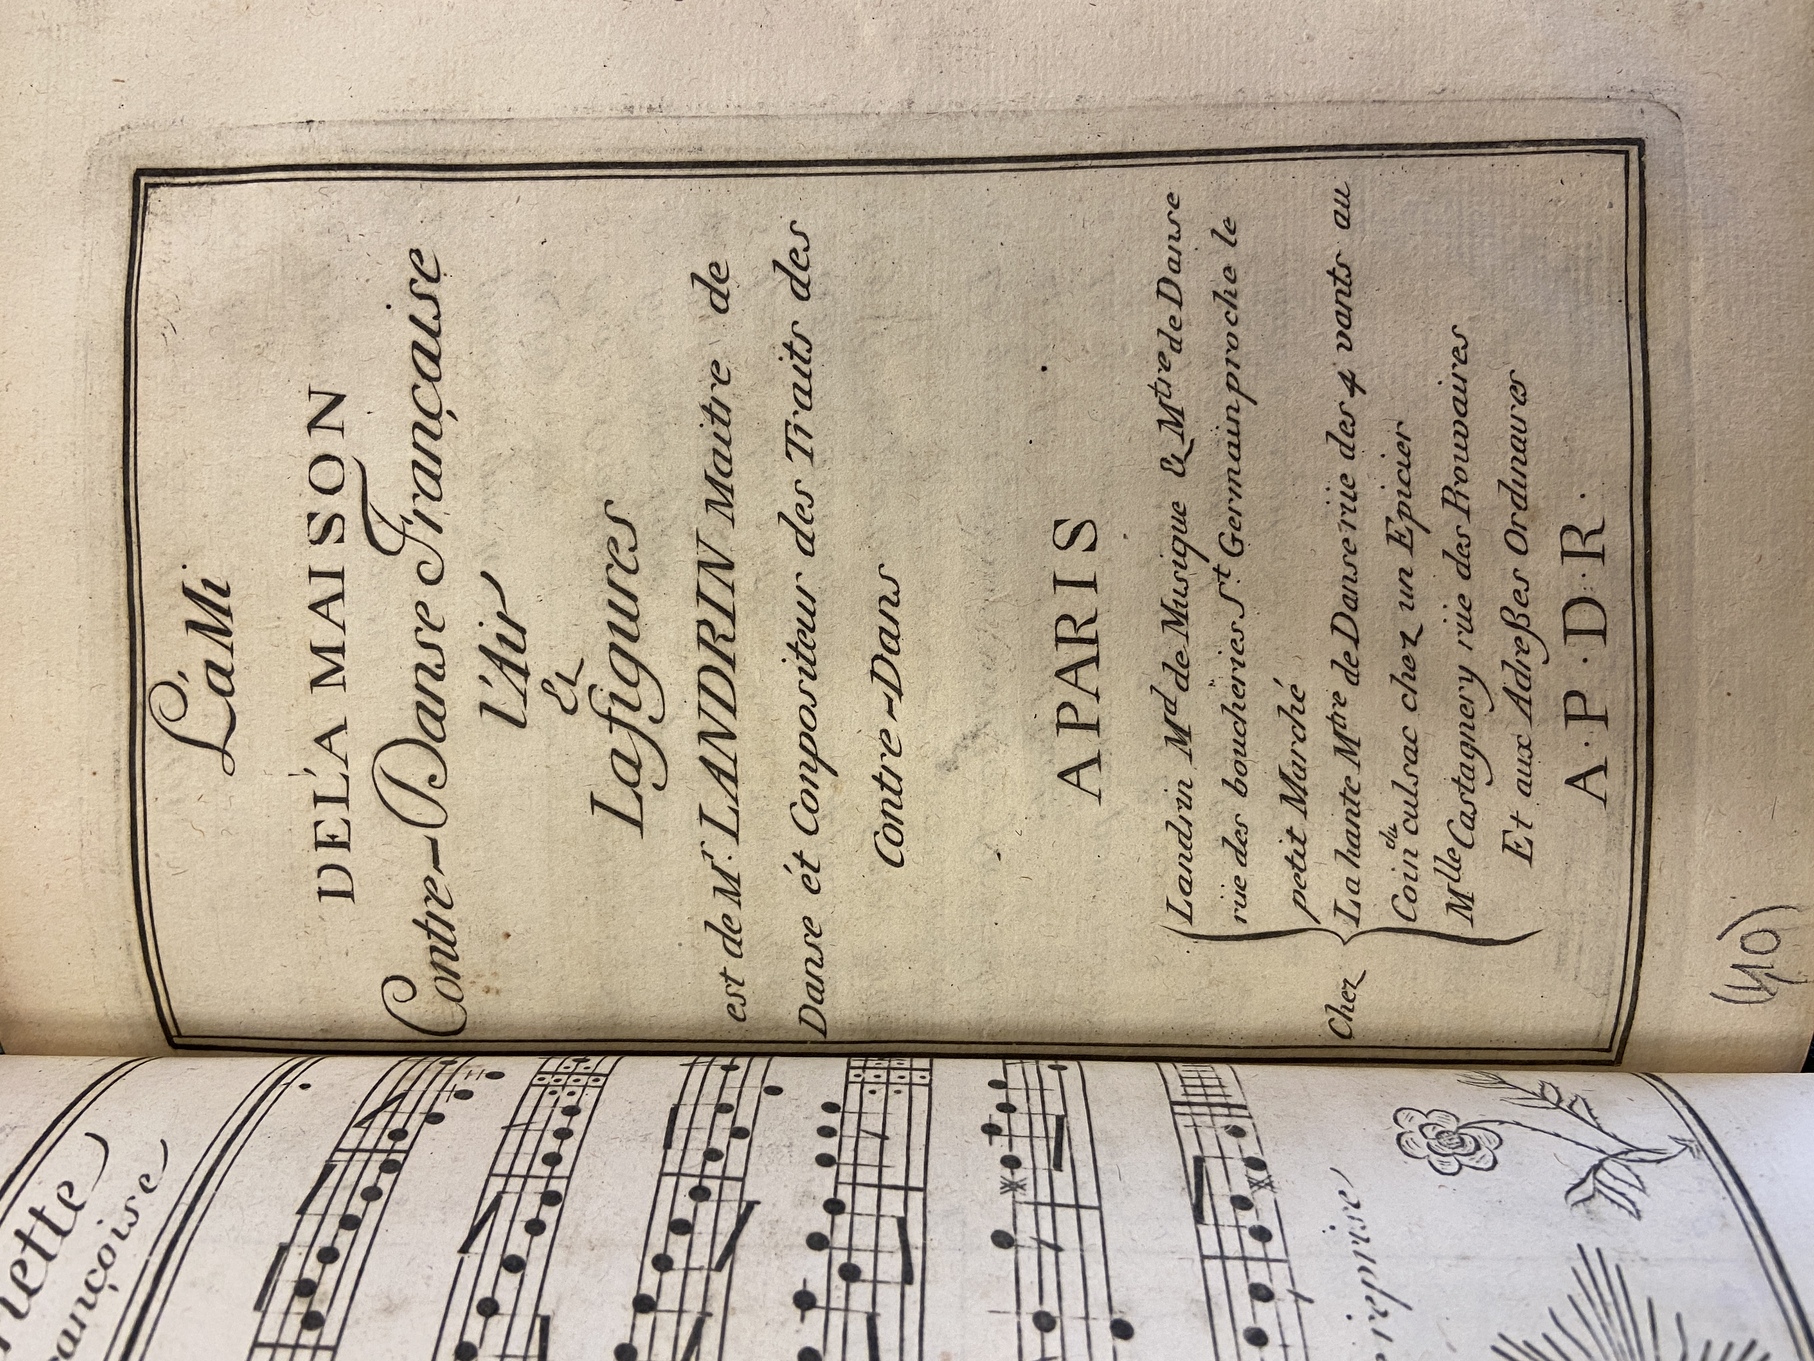 L'áMi
DEL'A MAISON
Contre-Danse Française
l'Air
&
La figures
est de Mr. LANDRIN Maitre de
Danse ét Compositeur des Traits des
Contre-Dans
A PARIS
Chez
Landrin Md de Musique & Mtre de Danse
rue des boucheries St Germain proche le
petit Marché
La hante Mtre de Danse rüe des 4 vants au
Coin du culsac chez un Epicier
Mlle Castagnery rüe des Prouvaires
Et aux Adreßes Ordinaires
A·P·D·R·
(40)
nette
ançoise
reprise